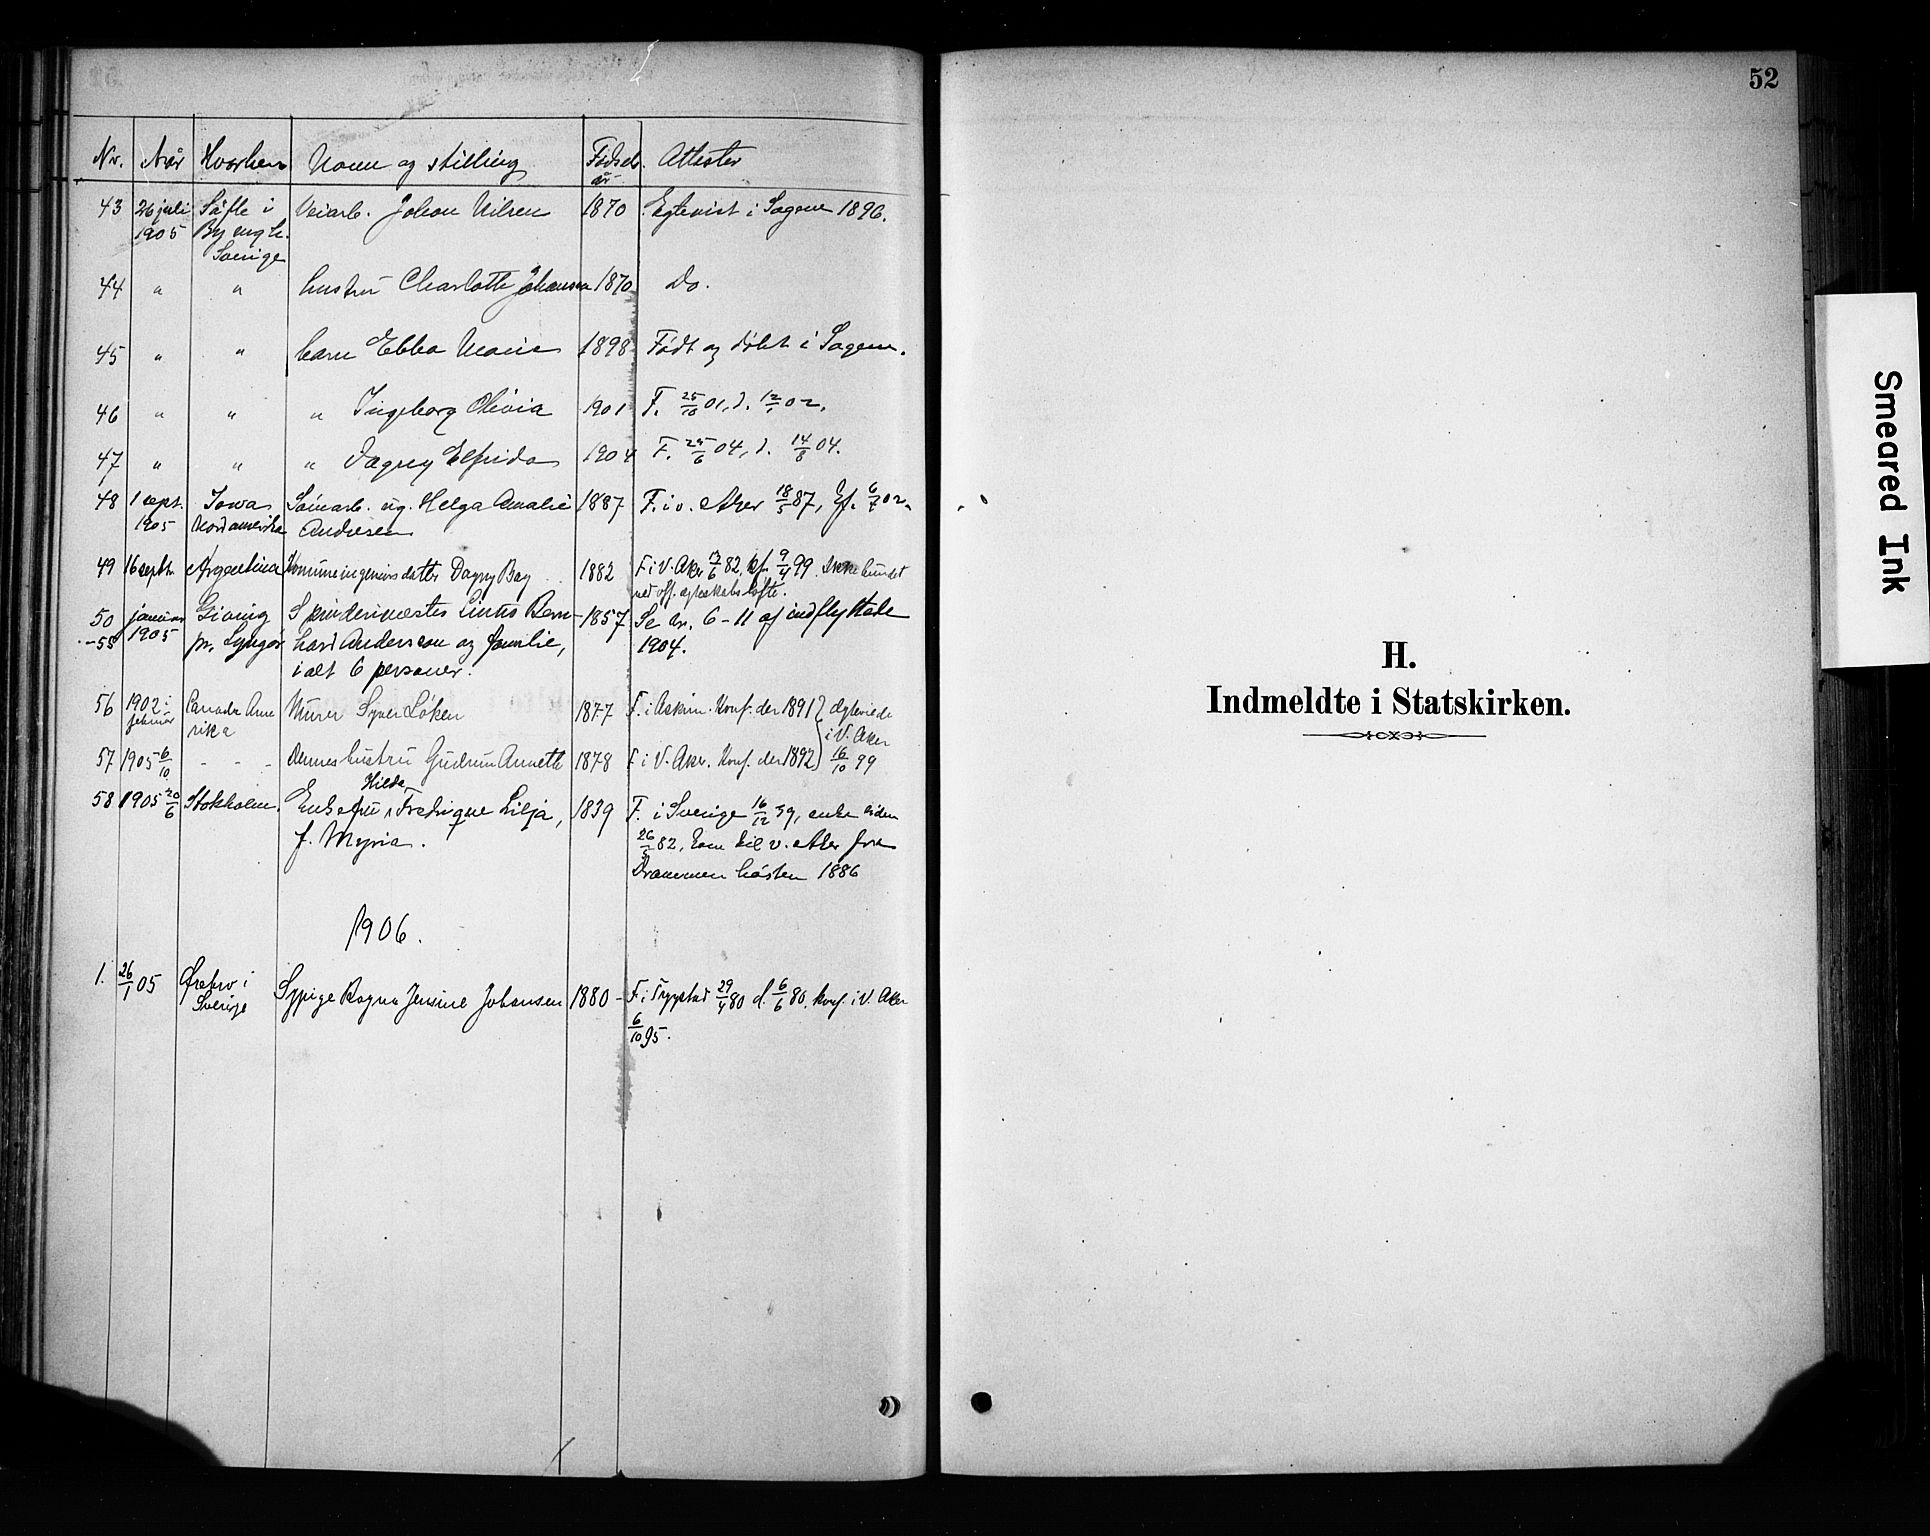 Nr. Når Hvorhen Navn og stilling Fødsels år Attester
43 26 juli 1905 Säfle i By Sverige Veiarb. Johan Nilsen 1870 Egteviet i Sagene 1896.
44 " " hustru Charlotte Johansen 1870 Do.
45 " " barn Ebba Marie 1898 Født og døbt i Sagene.
46 " " " Ingeborg Olivia 1901 F. 25/10 01, d. 12/1 02.
47 " " " Dagny Elfrida 1904 F. 25/6 04, d. 14/8 04.
48 1 sept. 1905 Iowa Nordamerika Sömarb. ug. Helga Amalie Andresen 1887 F. i v. Aker 18/5 87, kf. 6/7 02.
49 16 septb. Argentina Kommuneingeniørs datter Dagny Bay 1882 F i V. Aker 13/6 82, kf. 9/4 99. Ikke bundet ved off. egteskabsløfte.
50 -55 januar 1905 Gjeving pr. Lyngør Spindemester Linus Bernhard Andersson og familie, ialt 6 personer. 1857 Se nr. 6-11 af indflyttede 1904.
56 1902 i februar Canada Amerika Murer Syver Løken 1877 F. i Askim. Konf. der 1891 } Egteviede i V. Aker 16/10 99
57 1905 6/10 - - - Dennes hustru Gudrun Annette 1878 F i V. Aker. Konf. der 1892
58 1905 20/6 Stokholm. Enkefru Hilda Fredrique Lilja, f. Myria. 1839 F. i Sverige 16/12 39, enke siden 26/5 82, kom til v. Aker fra Drammen høsten 1886
1906.
1. 26/1 05 Ørebro i Sverige Sypige Ragna Jensine Johansen 1880 - F. i Trygstad 29/4 80 d. 6/6 80. konf. i V. Aker 6/10 95.
52
H.
Indmeldte i Statskirken.
Smeared Ink